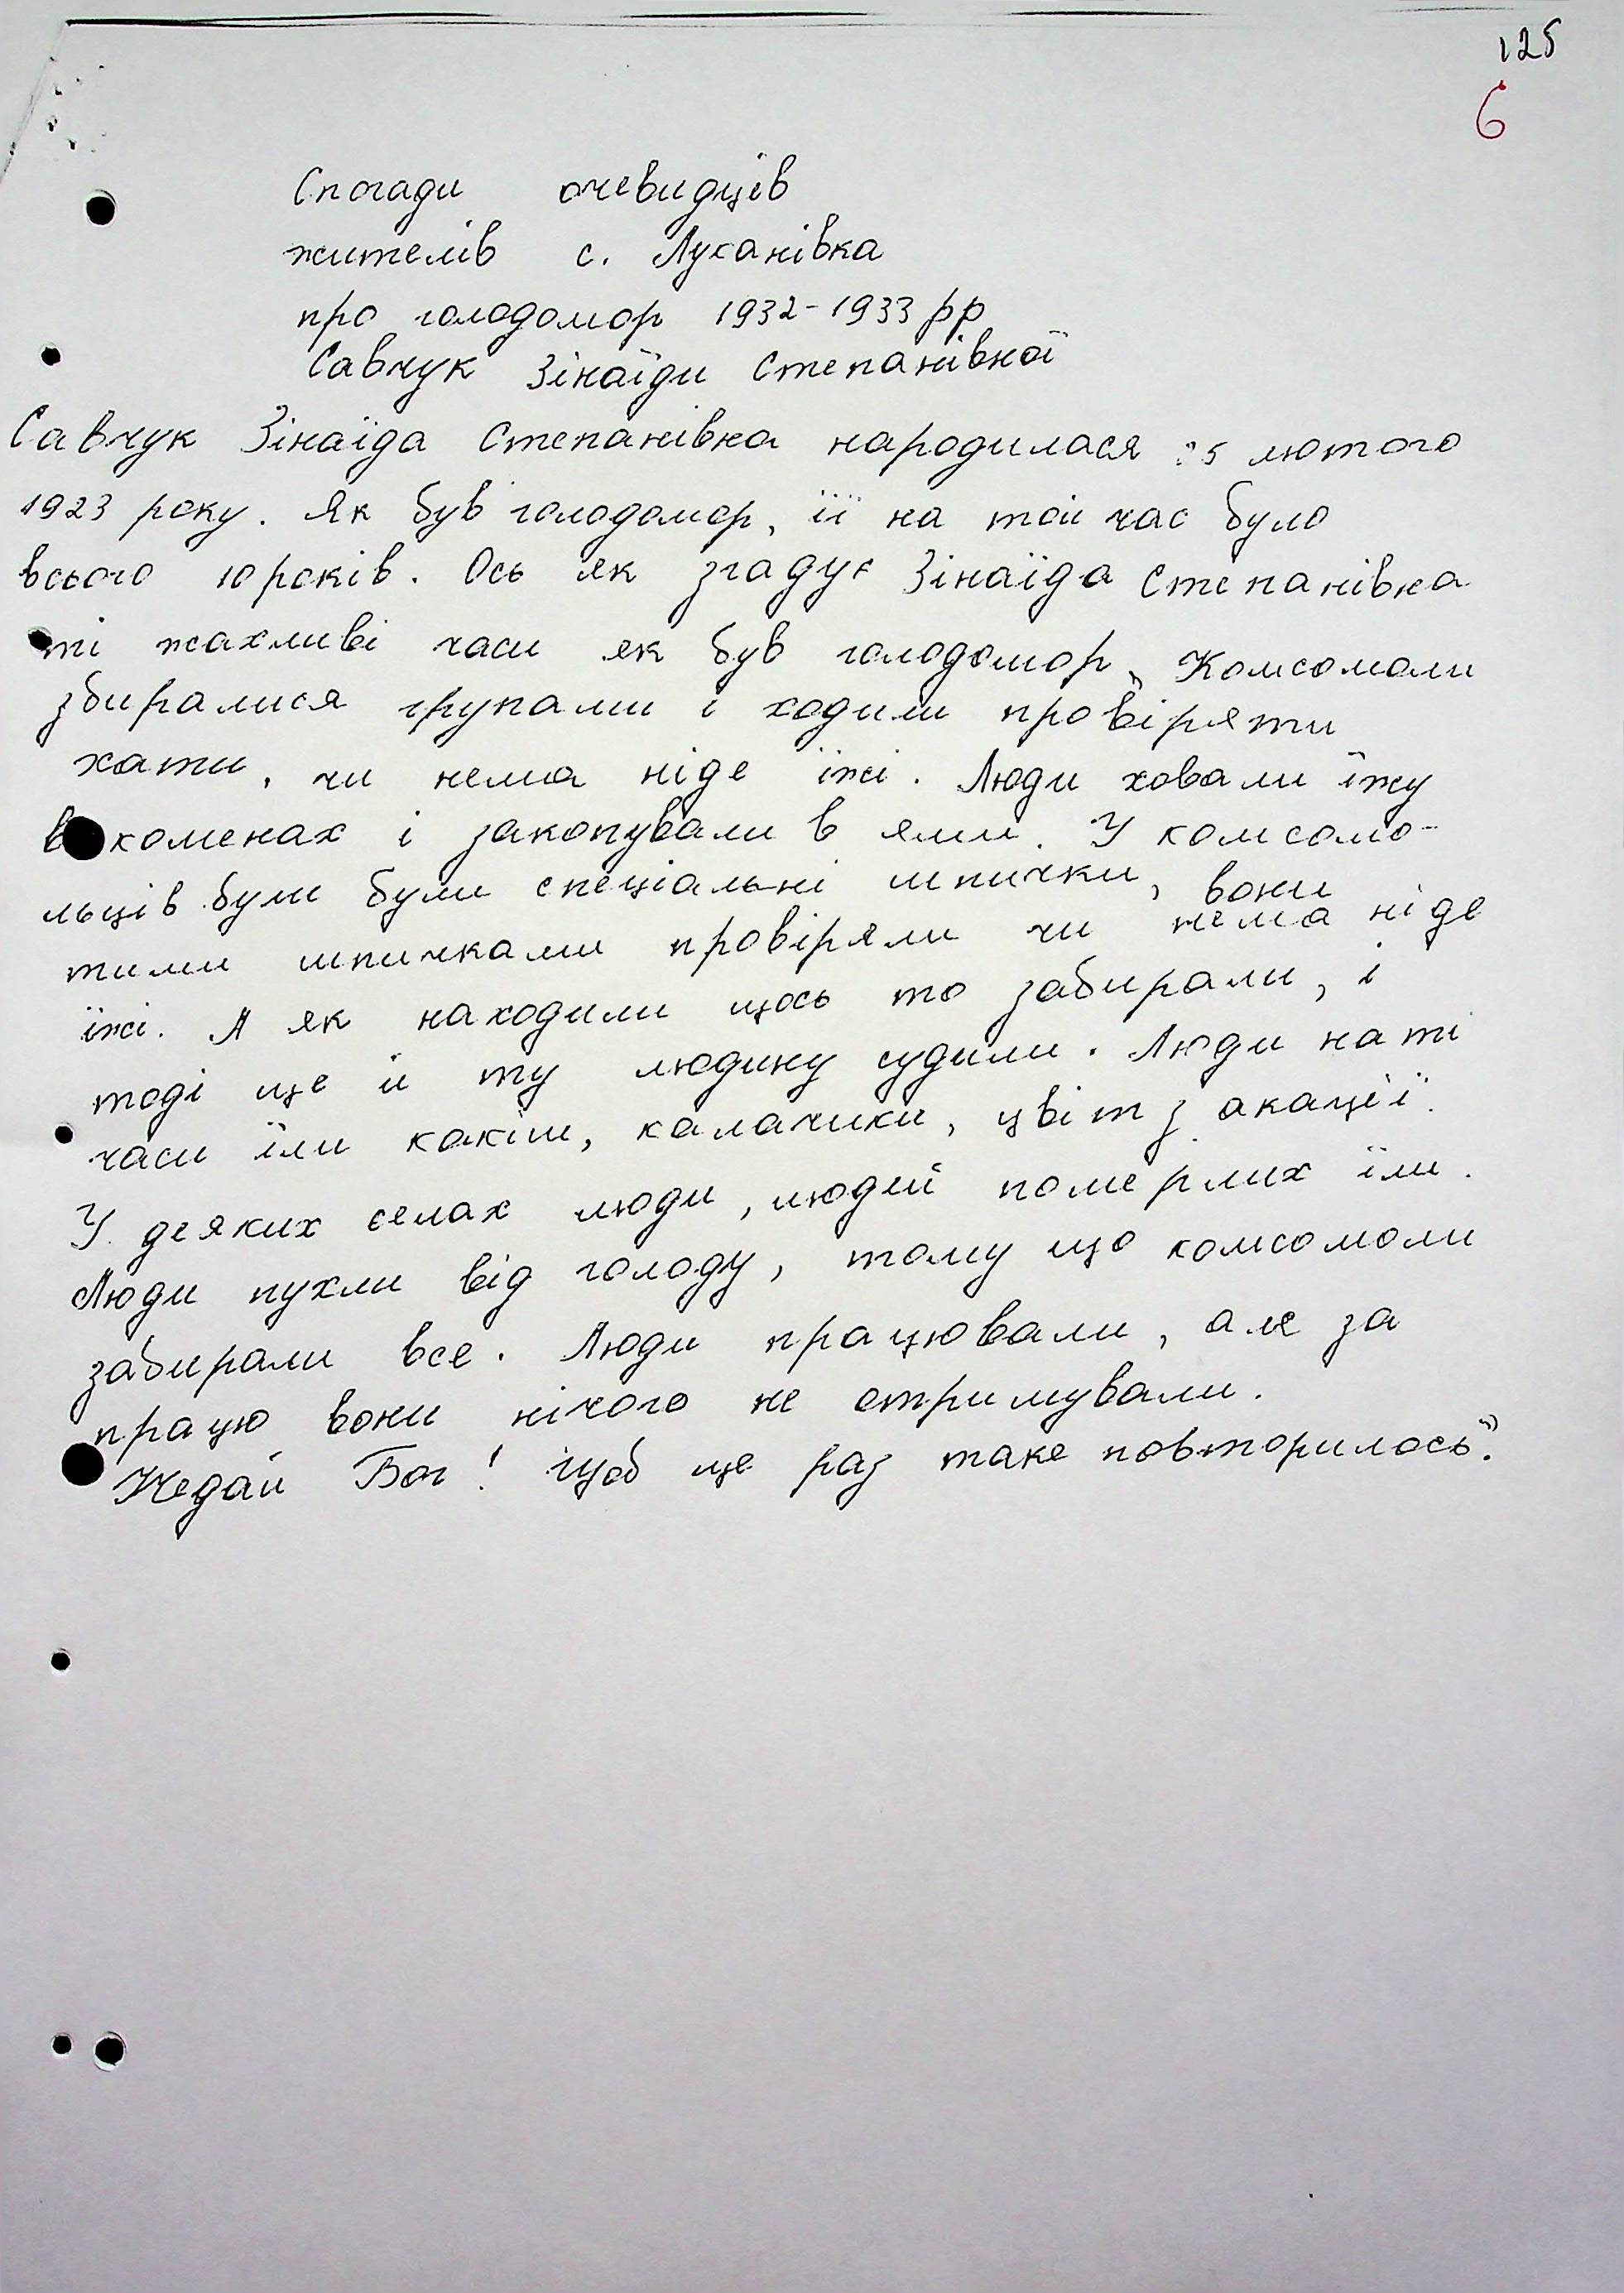 125
6
Спогади очевидців
жителів с. Луканівка
про голодомор 1932-1933 рр
Савчук Зінаїди Степанівної
Савчук Зінаїда Степанівна народилася 25 лютого
1923 року. Як був голодомор, її на той час було
всього 10 років. Ось як згадує Зінаїда Степанівна
ті жахливі часи як був голодомор „Комсомоли
збиралися групами і ходили провіряти
хати, чи нема ніде їжі. Люди ховали їжу
в коменах і закопували в ями. У комсомо-
льців були були спеціальні шпички, вони
тими шпичками провіряли чи нема ніде
їжі. А як находили щось то забирали, і
тоді ще й ту людину судили. Люди на ті
часи їли какіш, калачики, цвіт з акації.
У деяких селах люди, людей померлих їли.
Люди пухли від голоду, тому що комсомоли
забирали все. Люди працювали, але за
працю вони нічого не отримували.
Недай Бог! Щоб ще раз таке повторилось".